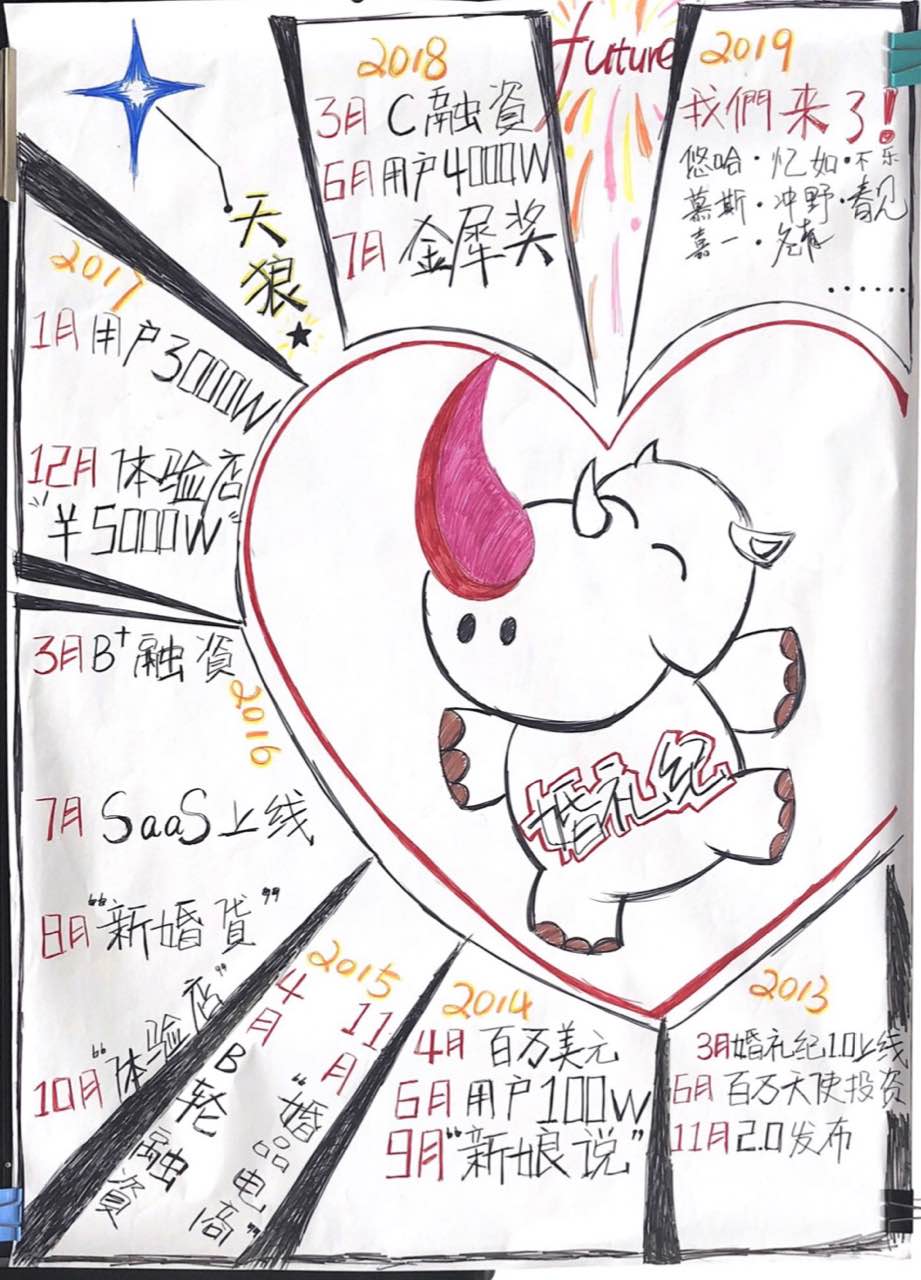 2018
3月 C融資
6月 用户4000W
7月 金犀奖
future
2019
我們来了!
悠哈·忆如·不乐
慕斯·冲野·春见
嘉一·
......
天狼
2017
1月 用户3000W
12月 体验店
"¥5000W"
2016
3月 B+融資
7月 SaaS上线
8月 "新婚货"
10月 "体验店"
2015
4月 B轮融資
11月 "婚品电商"
2014
4月 百万美元
6月 用户100W
9月 "新娘说"
2013
3月 婚礼纪1.0上线
6月 百万天使投资
11月 2.0发布
婚礼纪